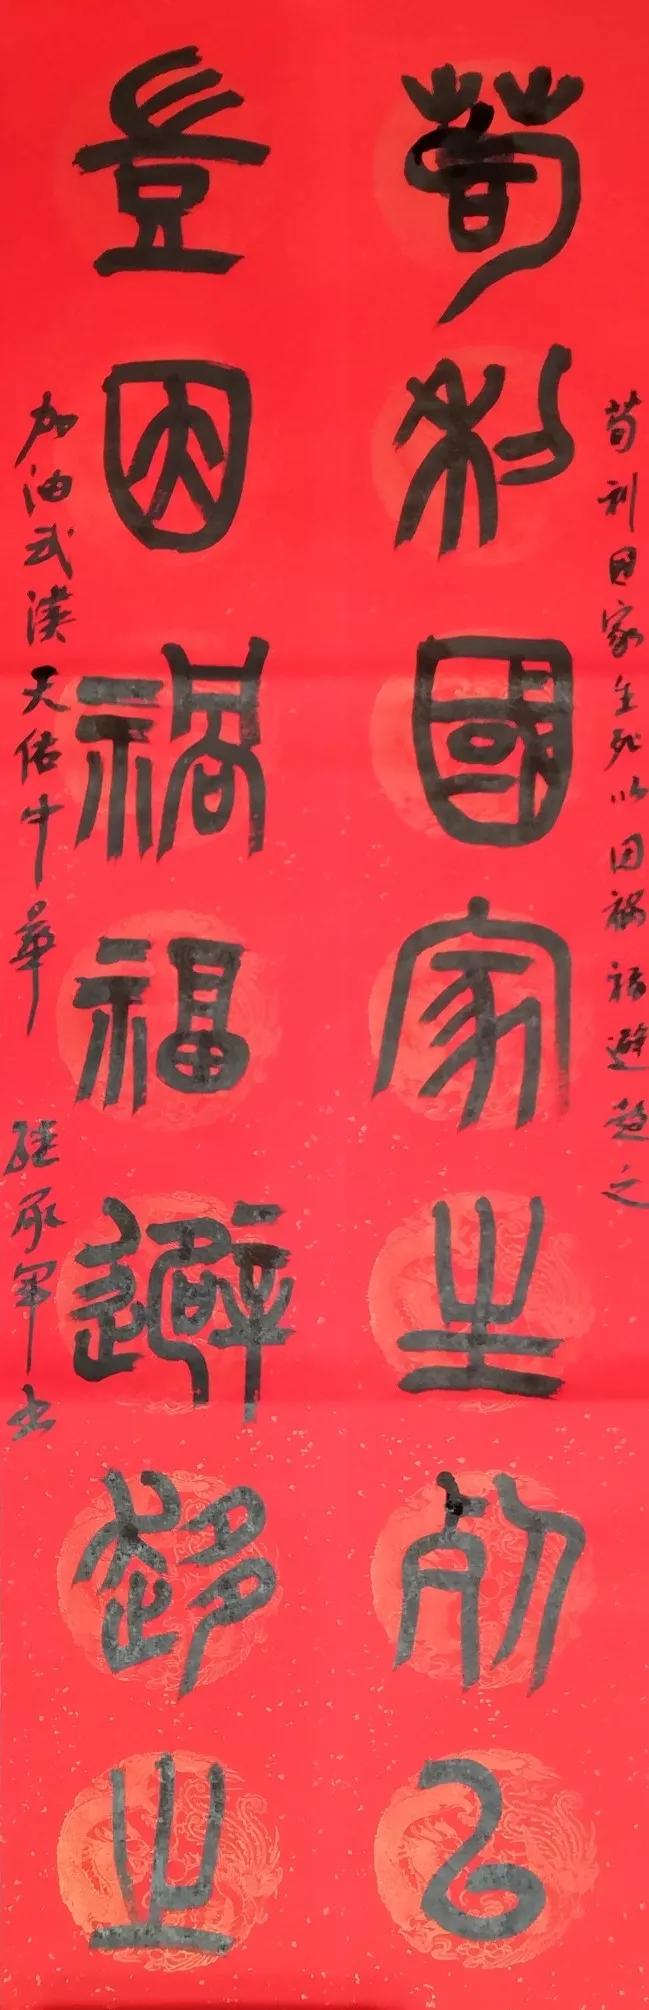 苟利國家生死以
豈因禍福避趨之
苟利国家生死以因祸福避趋之
加油武漢天佑中華
继承军书